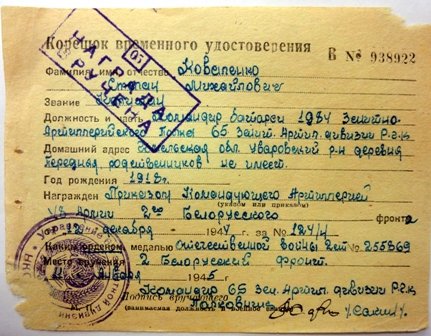 НАГРАДА
РУЧЕНА
Корешок временного удостоверения
В № 938922
Фамилия, имя и отчество Коваленко
Степан Михайлович
Звание Капитан
Должность и часть Командир батареи 1984 Зенитно-
Артиллерийского Полка 65 Зенит. Артил. дивизии Р.Г.К.
Домашний адрес обл. Уваровский р-н деревня
родственников не имеет.
Год рождения 1918 г.
Награжден Приказом Командующего Артиллерией
(указом или приказом)
Армии 2го Белорусского фронта
декабря 194 г. за №
Каким орденом, медалью Отечественной Войны 2ст № 255369
Место вручения 2 Белорусский Фронт.
января 1945 г.
Командир 65 Зен. Артил. дивизии Р.Г.К.
Подпись вручающего